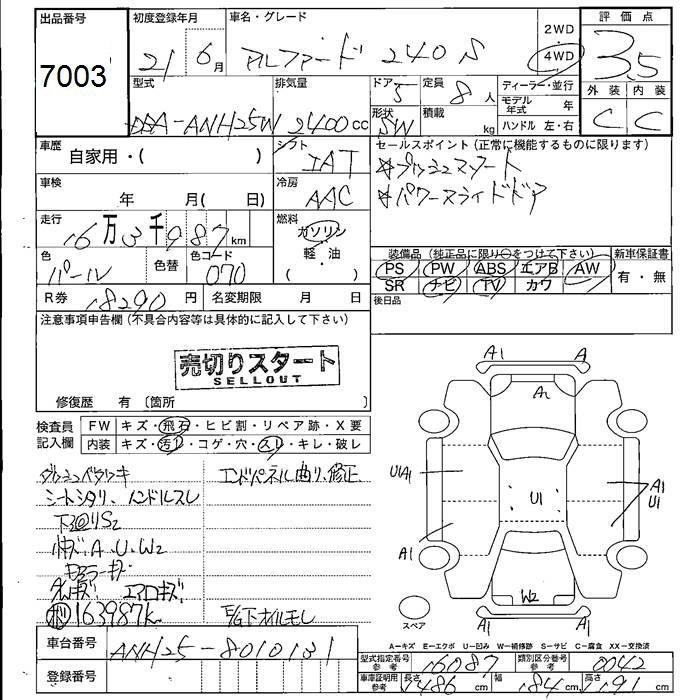 出品番号 初度登録年月 車名・グレード 2WD 評価点
7003 21年 6月 アルファード 240S 4WD 3.5
外装 内装
C C
型式 排気量 ドア 定員 ディーラー・並行
5 8人 モデル年式 年
DBA-ANH25W 2400cc 形状 積載 ハンドル 左・右
SW kg
車歴 シフト セールスポイント(正常に機能するものに限ります)
自家用・( ) IAT ☆プッシュスタート
車検 冷房 ☆パワースライドドア
年 月( 日) AAC
走行 燃料
16万3千987km ガソリン
軽・油
( )
装備品(純正品に限り○をつけて下さい) 新車保証書
色 色替 色コード PS PW ABS エアB AW 有・無
パール 070 SR ナビ TV カワ
R券 18290円 名変期限 月 日 後日品
注意事項申告欄(不具合内容等は具体的に記入して下さい)
売切りスタート
SELLOUT
修復歴 有〔箇所 〕
検査員記入欄 FW キズ・飛石・ヒビ割・リペア跡・X要
内装 キズ・汚れ・コゲ・穴・スレ・キレ・破レ
エンドパネル曲り、修正
ハンドルスレ
下回りS2
A.U.W2
エアロキズ
163987k
車台番号 ANH25-8010131
登録番号
A1 A
A2
U1A1 U1 A1
U1
A1
W2
A1 A1
スペア
A－キズ E－エクボ U－凹み W－補修跡 S－サビ C－腐食 XX－交換済
型式指定番号 参考 16087 類別区分番号 参考 0042
車庫証明用 参考 長さ 486cm 幅 184cm 高さ 191cm